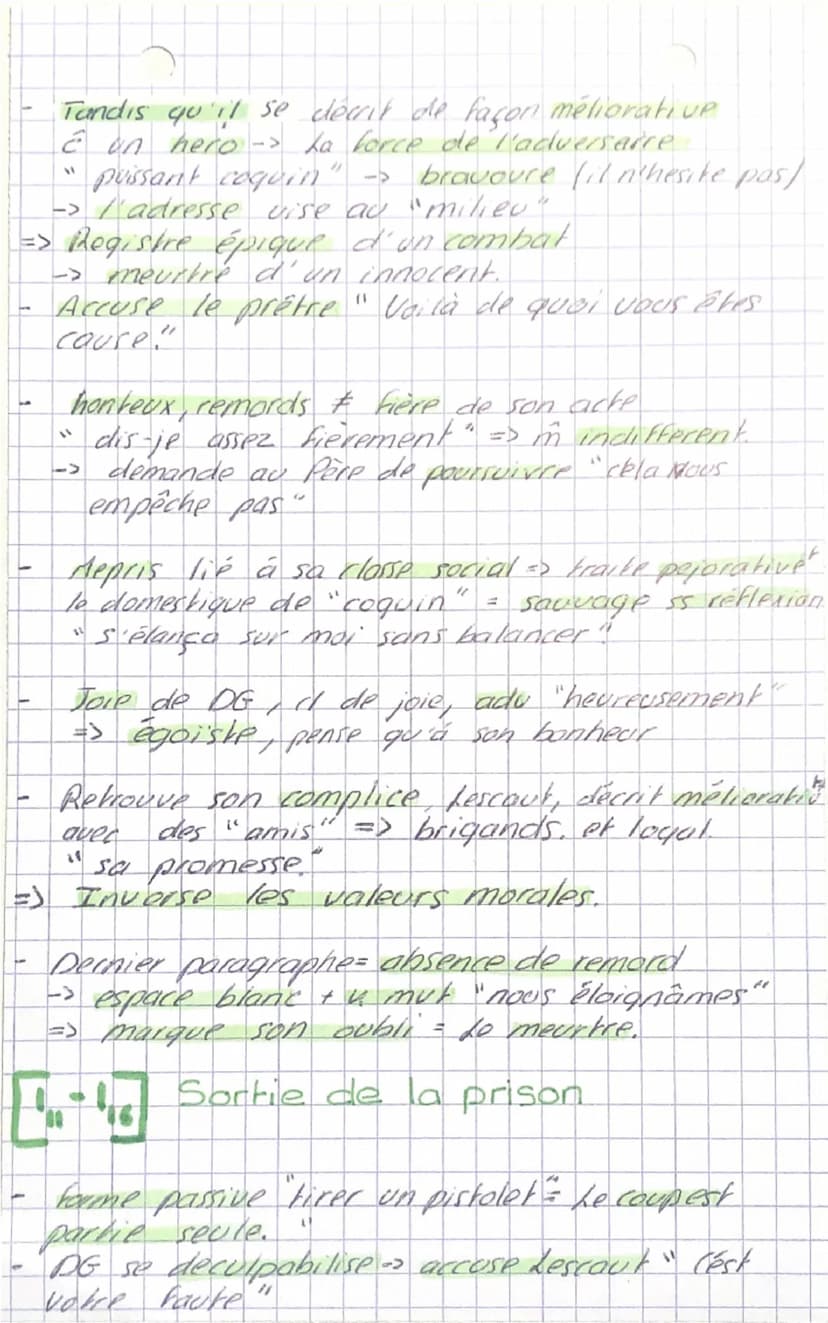 - Tandis qu'il se décrit de façon méliorative
ĉ un hero -> La force de l'adversaire
" puissant coquin" -> bravoure (il n'hesite pas)
-> l'adresse vise au "milieu"
=> Registre épique d'un combat
-> meurtre d'un innocent.
- Accuse le prêtre " Voilà de quoi vous êtes
cause."
- honteux, remords ≠ fière de son acte
" dis-je assez fièrement" => m̂ indifferent.
-> demande au Père de poursuivre "cela nous
empêche pas"
- Mepris lié à sa classe social => traite pejorativet
le domestique de "coquin" = sauvage ss réflexion
" s'élança sur moi sans balancer"
- Joie de DG, cl de joie, adv "heureusement"
=> égoïste, pense qu'à son bonheur
- Retrouve son complice, Lescaut, décrit méliorativt
avec des "amis" => brigands. et loyal.
" sa promesse."
=> Inverse les valeurs morales.
- Dernier paragraphe= absence de remord
-> espace blanc + mvt "nous éloignâmes"
=> marque son oubli = do meurtre.
[l11 - l16] Sortie de la prison
- forme passive "tirer un pistolet"= Le coup est
partie seule. "
- DG se deculpabilise -> accuse Lescaut " C'est
votre faute"